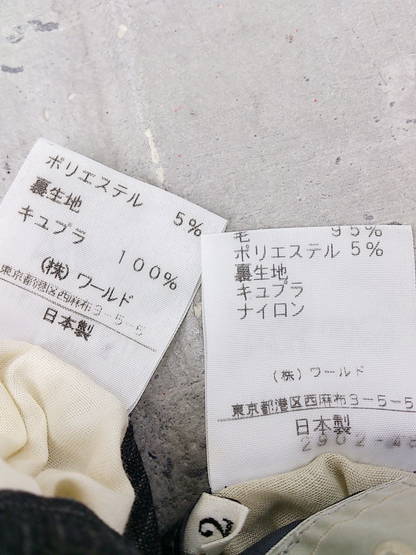 ポリエステル 5%
裏生地
キュプラ 100%
(株)ワールド
東京都港区西麻布3-5-5
日本製
毛 95%
ポリエステル 5%
裏生地
キュプラ
ナイロン
(株)ワールド
東京都港区西麻布3-5-5
日本製
2